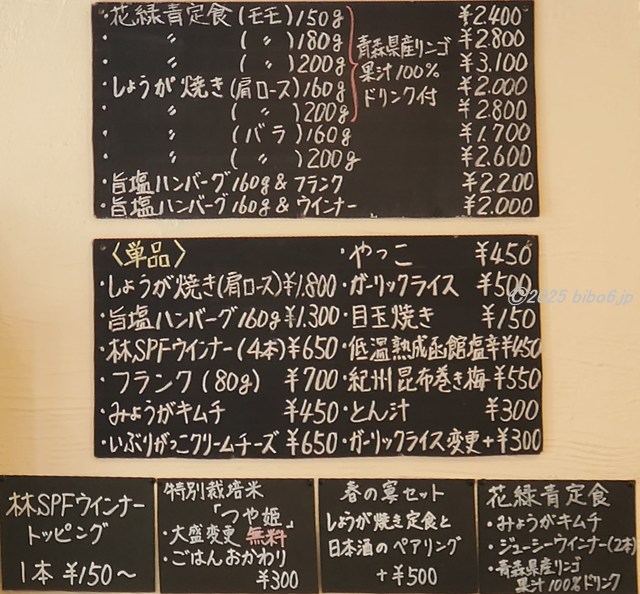 ・花緑青定食(モモ)150g ¥2.400
・〃 (〃)180g ¥2.800
・〃 (〃)200g ¥3.100
・しょうが焼き(肩ロース)160g ¥2.000
・〃 (〃)200g ¥2.800
青森県産リンゴ
果汁100%
ドリンク付
・〃 (バラ)160g ¥1.700
・〃 (〃)200g ¥2.600
・旨塩ハンバーグ160g&フランク ¥2.200
・旨塩ハンバーグ160g&ウインナー ¥2.000
〈単品〉
・しょうが焼き(肩ロース)¥1.800
・旨塩ハンバーグ160g ¥1.300
・林SPFウインナー(4本)¥650
・フランク(80g) ¥700
・みょうがキムチ ¥450
・いぶりがっこクリームチーズ ¥650
・やっこ ¥450
・ガーリックライス ¥500
・目玉焼き ¥150
・低温熟成函館塩辛 ¥450
・紀州昆布巻き梅 ¥550
・とん汁 ¥300
・ガーリックライス変更+¥300
林SPFウインナー
トッピング
1本 ¥150〜
特別栽培米
「つや姫」
・大盛変更 無料
・ごはんおかわり
¥300
春の宴セット
しょうが焼き定食と
日本酒のペアリング
+¥500
花緑青定食
・みょうがキムチ
・ジューシーウインナー(2本)
・青森県産リンゴ
果汁100%ドリンク
©2025 bibo6.jp